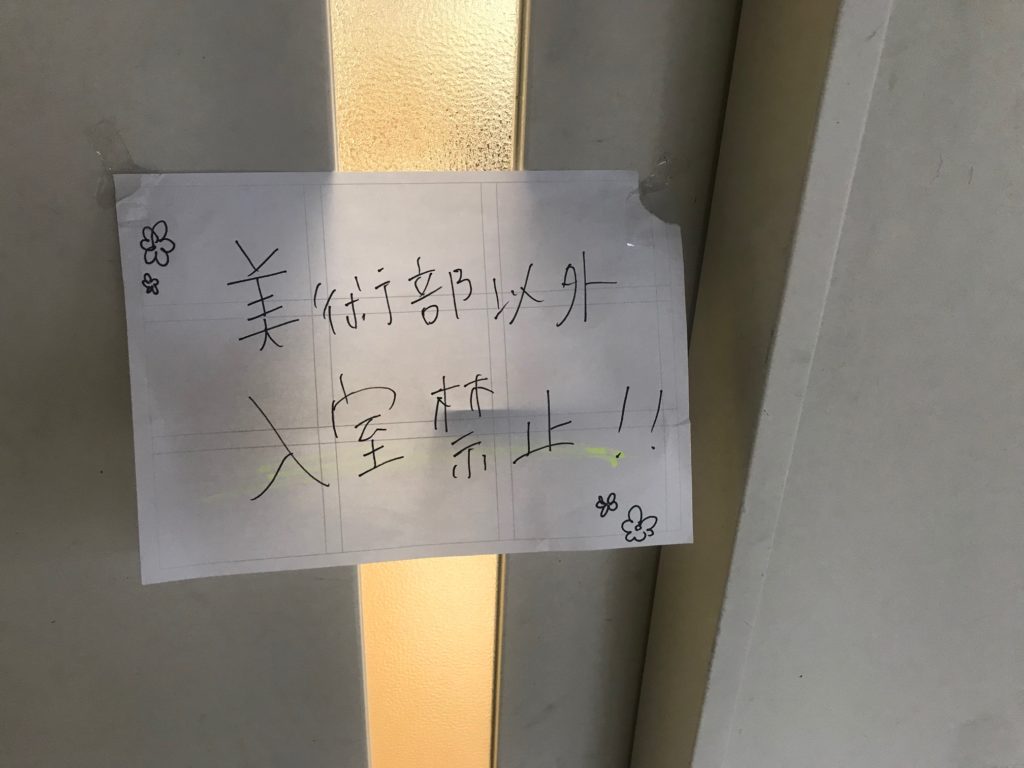 美術部以外
入室禁止!!